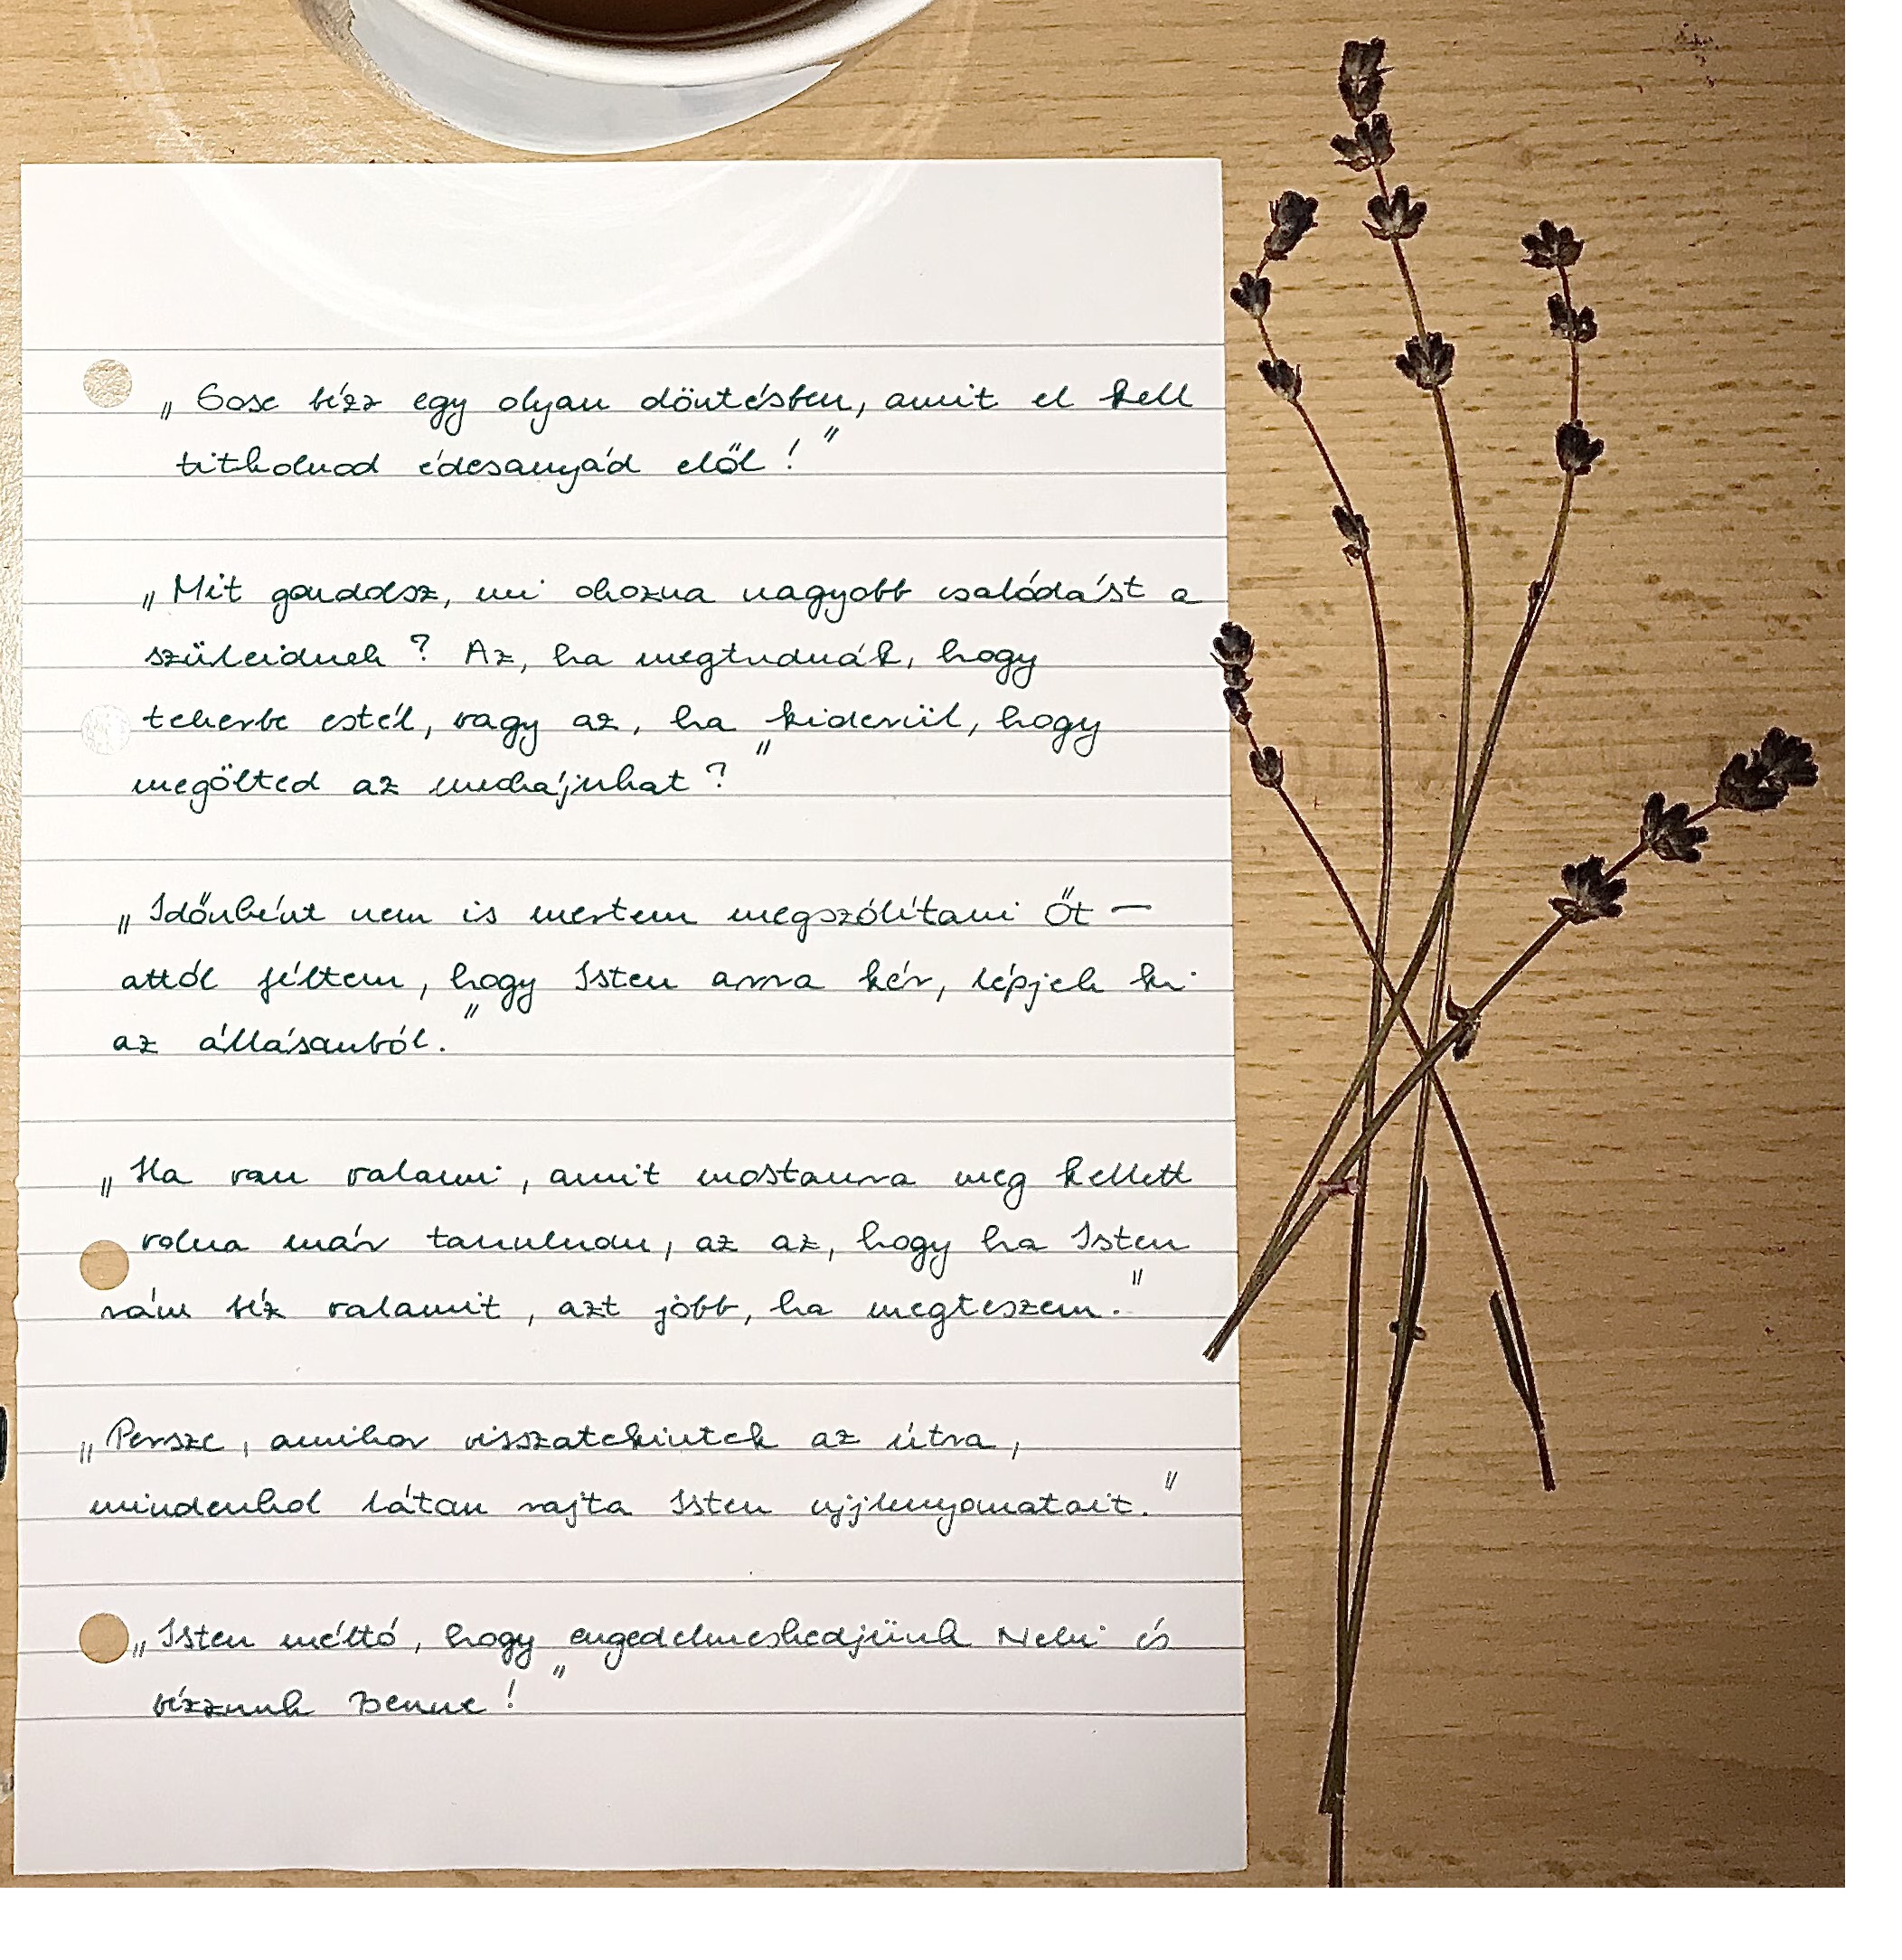 „Sose bízz egy olyan döntésben, amit el kell
titkolnod édesanyád elől!"
„Mit gondolsz, mi okozna nagyobb csalódást a
szüleidnek? Az, ha megtudnák, hogy
teherbe estél, vagy az, ha kiderül, hogy
megölted az unokájukat?"
„Időnként nem is mertem megszólítani Őt —
attól féltem, hogy Isten arra kér, lépjek ki
az állásomból."
„Ha van valami, amit mostanra meg kellett
volna már tanulnom, az az, hogy ha Isten
rám bíz valamit, azt jobb, ha megteszem."
„Persze, amikor visszatekintek az útra,
mindenhol látom rajta Isten ujjlenyomatait."
„Isten méltó, hogy engedelmeskedjünk Neki és
bízzunk Benne!"